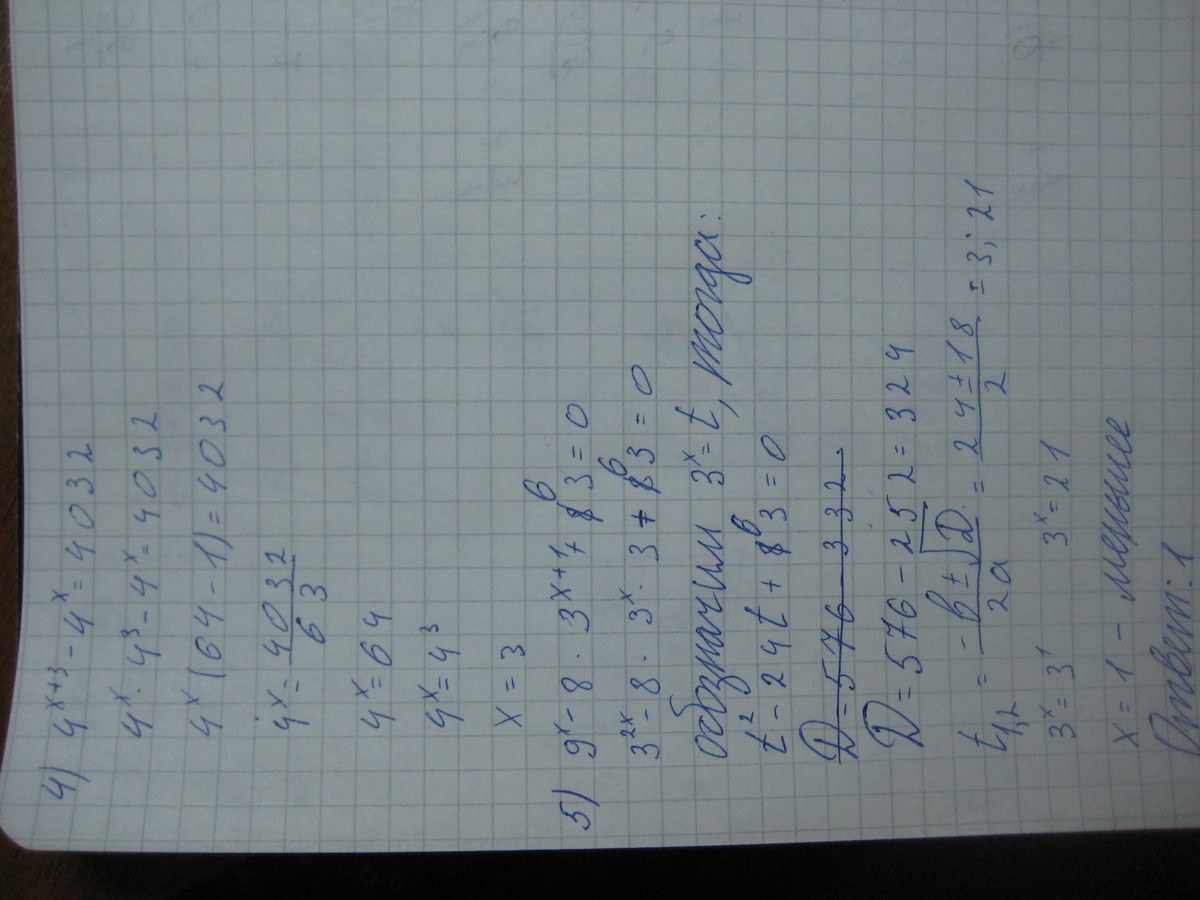 4) 4^{x+3} - 4^x = 4032
4^x · 4^3 - 4^x = 4032
4^x (64 - 1) = 4032
4^x = 4032/63
4^x = 64
4^x = 4^3
x = 3
5) 9^x - 8 · 3^{x+1} + 63 = 0
3^{2x} - 8 · 3^x · 3 + 63 = 0
обозначим 3^x = t, тогда:
t^2 - 24t + 63 = 0
D = 576 - 332.
D = 576 - 252 = 324
t_{1,2} = (-b ± √D)/2a = (24 ± 18)/2 = 3; 21
3^x = 3^1 3^x = 21
x = 1 - меньшее
Ответ: 1